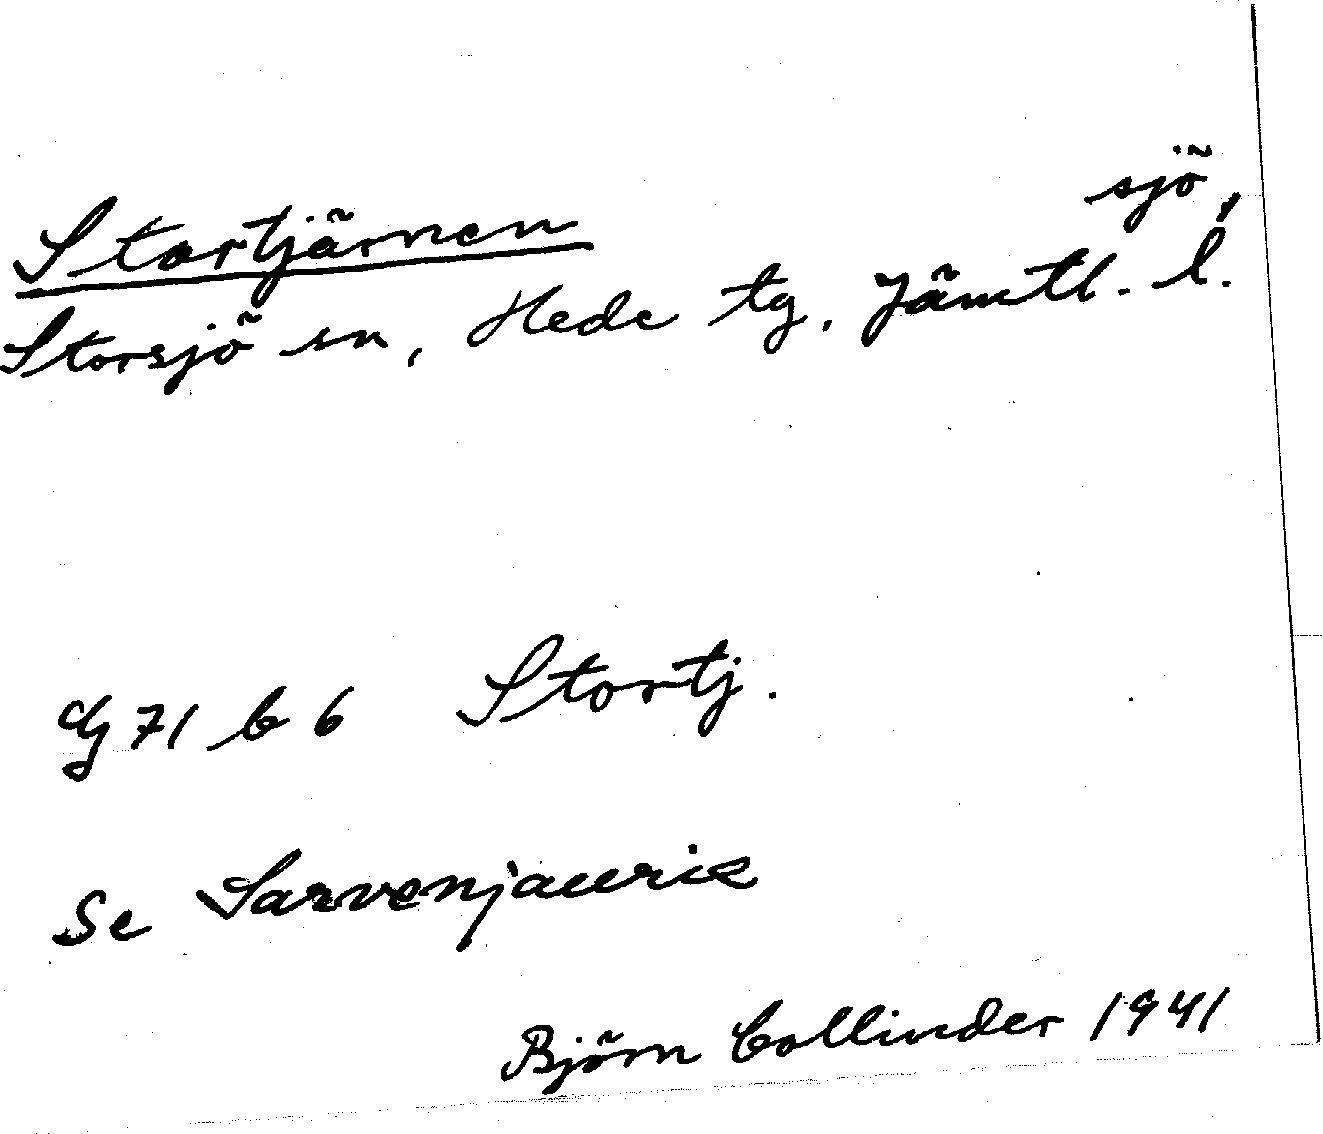 sjö,
Stortjärnen
Storsjö sn, Hede tg. Jämtl. l.
G 71 b 6 Stortj.
Se Sarvenjauric
Björn Collinder 1941